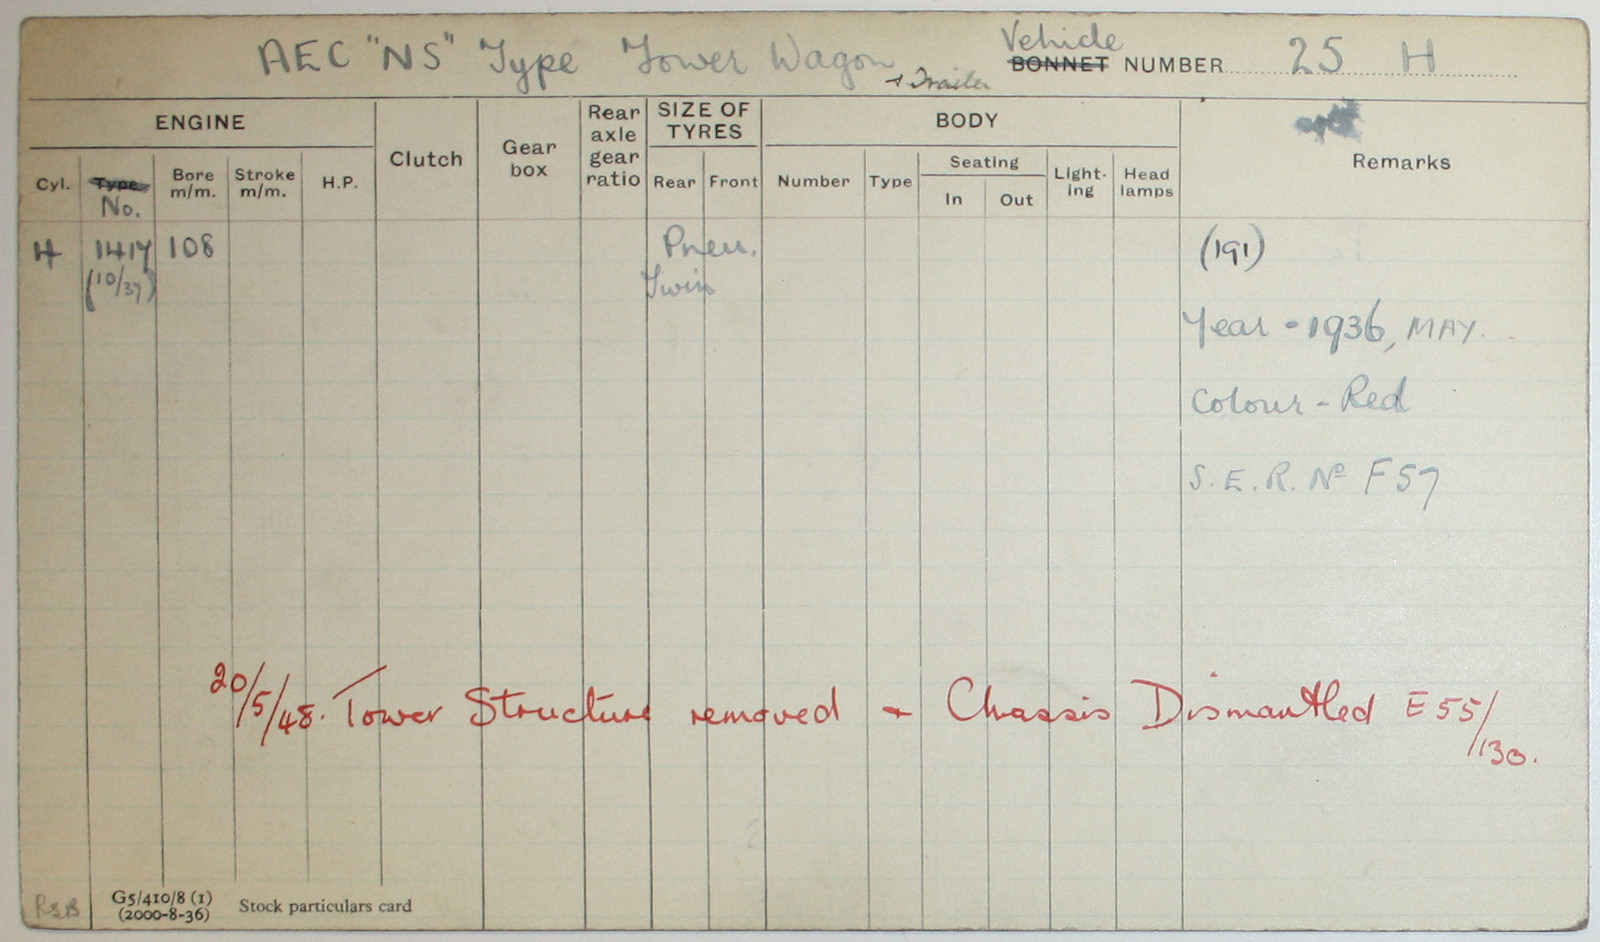 AEC "NS" Type Tower Wagon + Trailer
Vehicle
BONNET NUMBER 25 H
ENGINE
Clutch
Gear box
Rear axle gear ratio
SIZE OF TYRES
BODY
Remarks
Cyl. Type No. Bore m/m. Stroke m/m. H.P. Rear Front Number Type Seating In Out Light-ing Head lamps
4 1417 108 Pneu. (191)
(10/37) Twin
Year - 1936, MAY.
Colour - Red
S.E.R. No F57
20/5/48. Tower Structure removed + Chassis Dismantled E55/130.
RSB
G5/410/8 (1)
(2000-8-36)
Stock particulars card